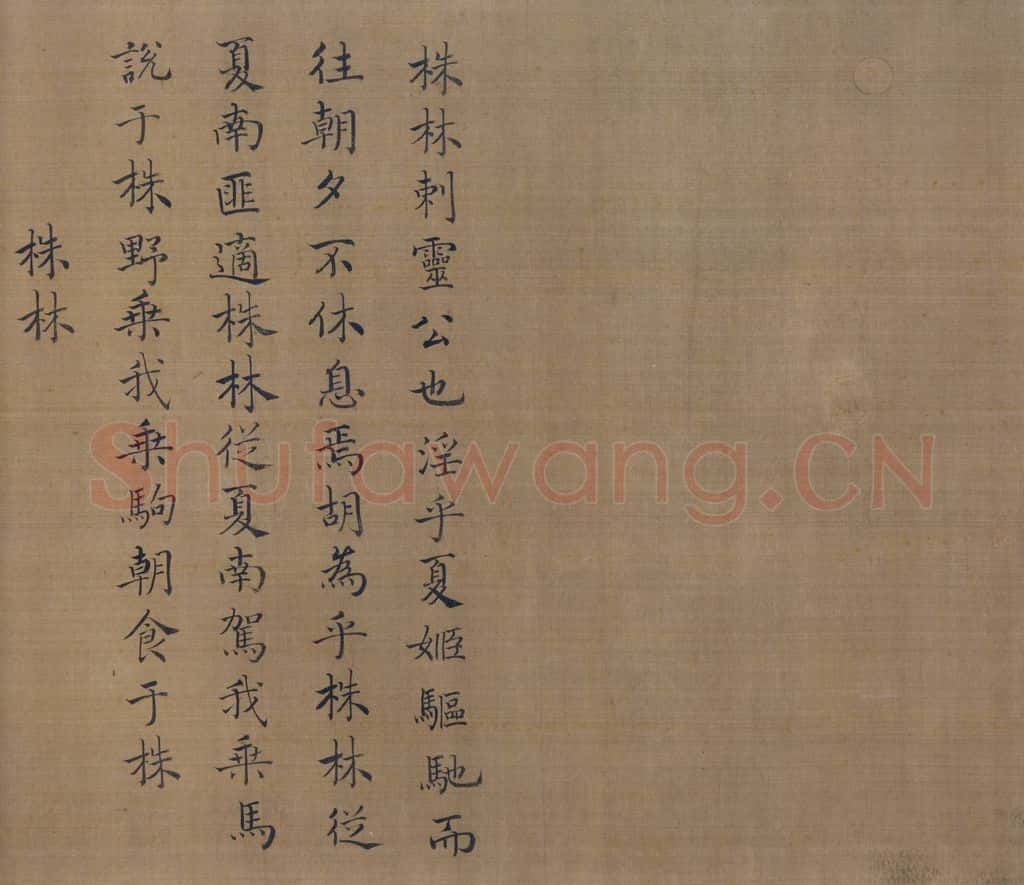 株林刺靈公也淫乎夏姬驅馳而
往朝夕不休息焉胡為乎株林從
夏南匪適株林從夏南駕我乗馬
說于株野乗我乗駒朝食于株
株林
Shufawang.CN